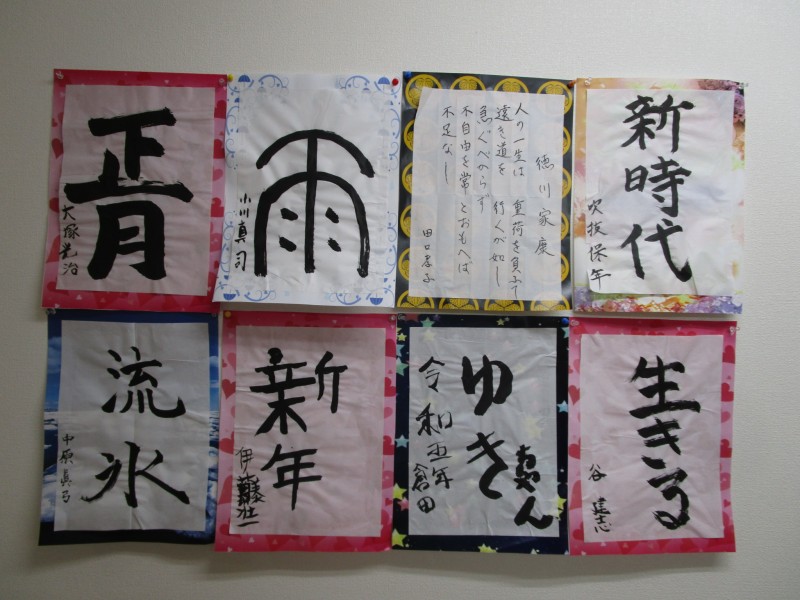 正月
小川真司
雨
徳川家康
人の一生は 重荷を負ふて
遠き道を 行くが如し
急ぐべからず
不自由を常とおもへば
不足なし
田口孝子
新時代
吹抜保年
流氷
中原真弓
新年
伊藤壮一
ゆき
令和五年
倉田
生きる
谷 建志